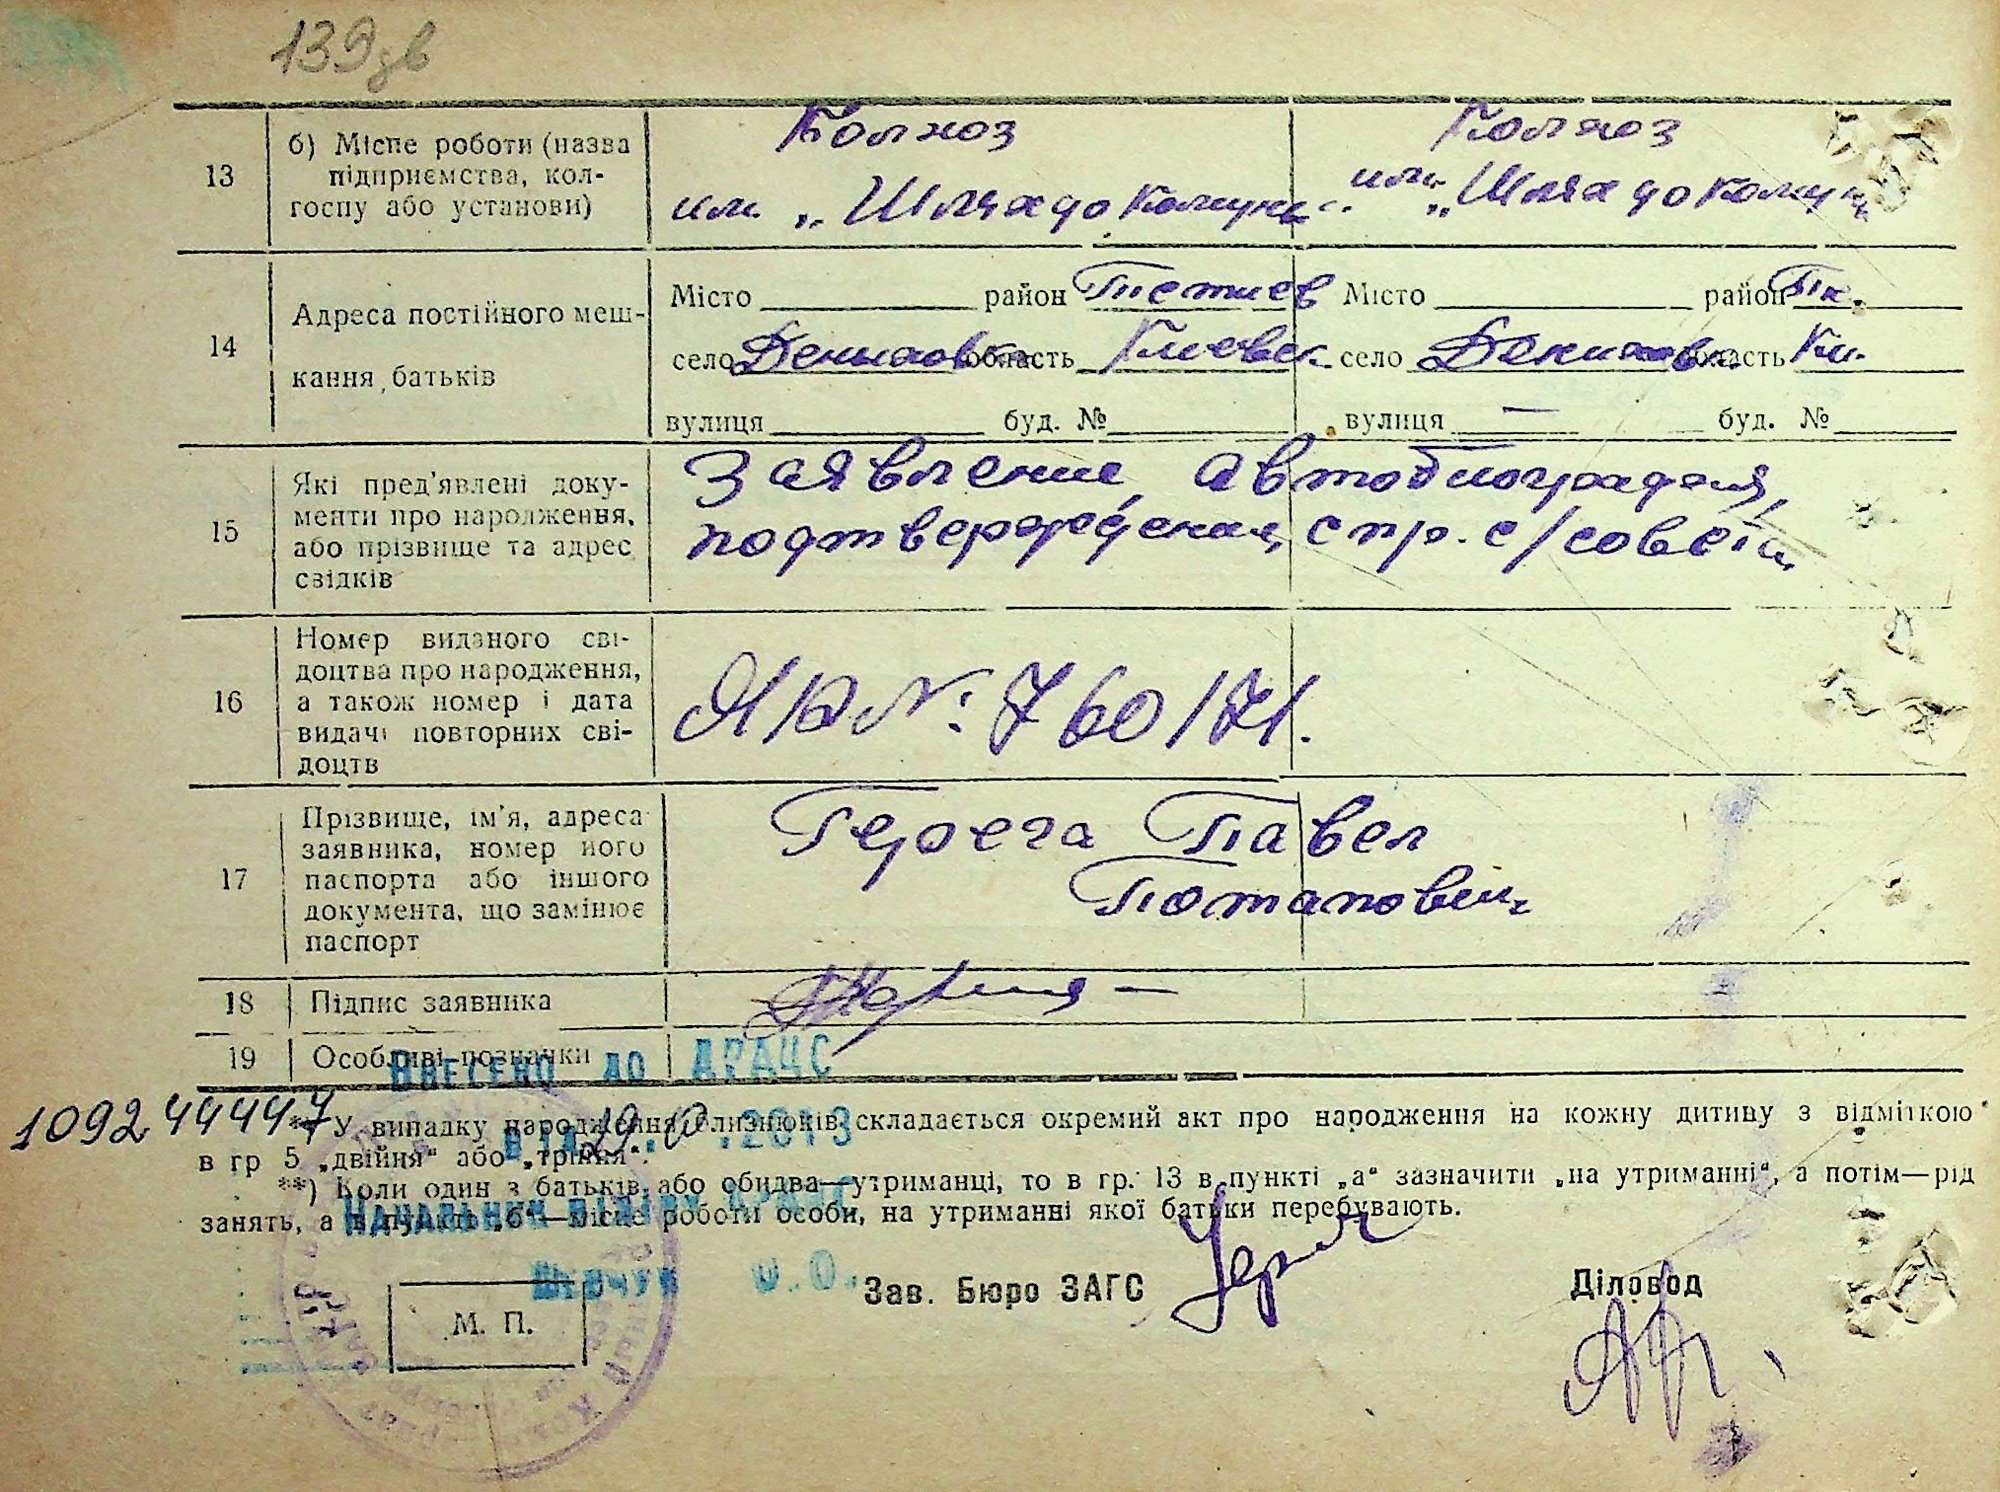 139зв
13
б) Місце роботи (назва
підприємства, кол-
госпу або установи)
Колхоз
им. „Шлях до Комун
Колхоз
им. „Шлях до Комун
14
Адреса постійного меш-
кання батьків
Місто район Тетиев
село область Киевск
вулиця буд. №
Місто район
село область Ки.
вулиця — буд. №
15
Які пред'явлені доку-
менти про народження,
або прізвище та адрес
свідків
Заявление, автобиография,
подтверждения, спр. с/совета
16
Номер виданого сві-
доцтва про народження,
а також номер і дата
видачі повторних сві-
доцтв
№: 760171.
17
Прізвище, ім'я, адреса
заявника, номер його
паспорта або іншого
документа, що замінює
паспорт
Герега Павел
Потапович
18
Підпис заявника
19
Особливі позначки
Внесено до ДРАЦС
109244447
*) У випадку народження близнюків складається окремий акт про народження на кожну дитину з відміткою
.2013
в гр 5 „двійня“ або „трійня“.
**) Коли один з батьків, або обидва—утриманці, то в гр. 13 в пункті „а“ зазначити „на утриманні“, а потім—рід
занять, а в пункті „б“—місце роботи особи, на утриманні якої батьки перебувають.
Начальник відділу ДРАЦС
Шевчук О.О.
Зав. Бюро ЗАГС
Діловод
М. П.